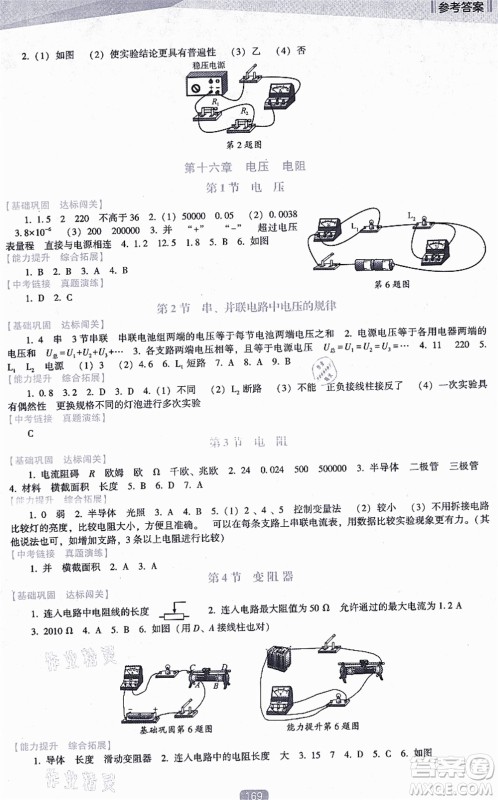 参考答案
2.（1）如图 （2）使实验结论更具有普遍性 （3）乙 （4）否
稳压电源
R₁
R₂
第2题图
第十六章 电压 电阻
第1节 电压
【基础巩固 达标闯关】
1. 1.5 2 220 不高于36 2.（1）50000 0.05 （2）0.0038
3.8×10⁻⁶ （3）200 200000 3. 并 “+” “-” 超过电压
表量程 直接与电源相连 4. 1.2 12.5 1.8 5. B 6. 如图
【能力提升 综合拓展】
1. B 2. B 3. C 4. A
【中考链接 真题演练】
1. D 2. C
L₁
L₂
第6题图
第2节 串、并联电路中电压的规律
【基础巩固 达标闯关】
1. 4 串 3 节串联 串联电池组两端的电压等于每节电池两端电压之和 2. 电源电压等于各用电器两端的
电压和 U总=U₁+U₂+U₃+… 3. 各支路两端的电压相等，且等于电源电压 U总=U₁=U₂=U₃=… 4. 11 220 5.
L₁ L₂ 电源 （2）4.6 6. L 短路 （1）4.5 7. B 8. A
【能力提升 综合拓展】
1. 0.8 3.2 2. C 3. D 4.（1）不同 （2）L₂断路 （3）不能 正负接线柱接反了 （4）一次实验具
有偶然性 更换规格不同的灯泡进行多次实验
【中考链接 真题演练】
C
第3节 电阻
【基础巩固 达标闯关】
1. 电流阻碍 R 欧姆 欧 Ω 千欧、兆欧 2. 24 0.024 500 500000 3. 半导体 二极管 三极管
4. 材料 横截面积 长度 5. B 6. D 7. A 8. D
【能力提升 综合拓展】
1. 0 2. 导体 光照 3. B 4. B 5.（1）2、4、5 控制变量法 （2）较小 （3）不用拆接电路
比较灯的亮度，实验现象不明显。 可以在每条支路上串联电流表，用数据比较实验现象更有力。（其
他说法也可，如增加支路，3条以上的支路进行比较）
【中考链接 真题演练】
1. 并 横截面积 2. A 3. A
第4节 变阻器
【基础巩固 达标闯关】
1. 连入电路中电阻线的长度
2. 连入电路最大阻值为50 Ω 允许通过的最大电流为1.2 A
3. 2010 Ω 4. A 5. B 6. 如图（用D、A接线柱也对）
C
D
A
B
基础巩固第6题图
能力提升第6题图
【能力提升 综合拓展】
1. 导体 长度 滑动变阻器 2. 连入电路中的电阻长度 大 3. 15 7 4. D 5. C 6. 如图
169
作业精灵
作业精灵
答案圈
MXQE.COM